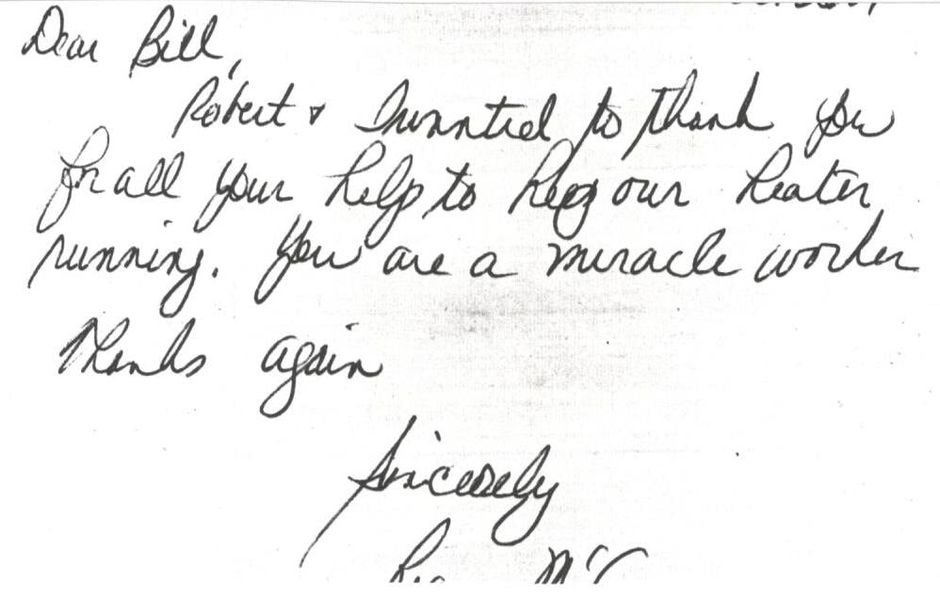 Dear Bill,
Robert & I wanted to thank you
for all your help to keep our heater
running. You are a miracle worker
Thanks again
Sincerely